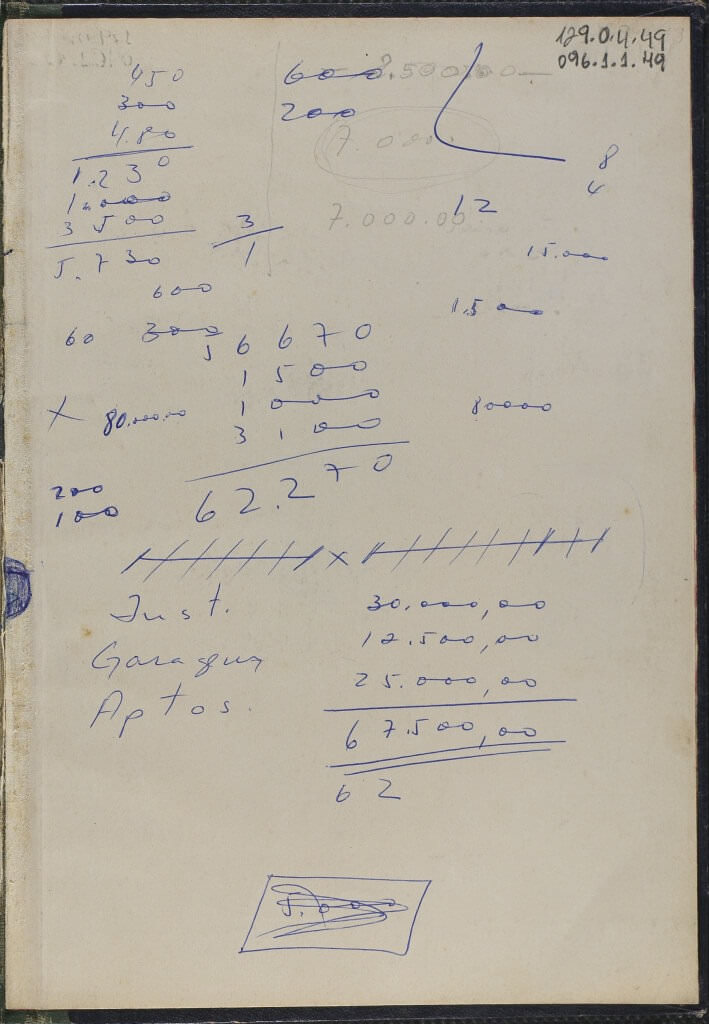 129.0.4.49
096.1.1.49
450
600
8.500.00
300
200
480
7.000
1.230
8
4
1.000
3500
7.000.00
12
3
1
5.730
15.000
600
1.500
60
300
56670
1500
X 80.000.00
1000
80000
3100
200
100
62.270
X
Inst. 30.000,00
Garagem 12.500,00
Aptos. 25.000,00
67.500,00
62
5.000